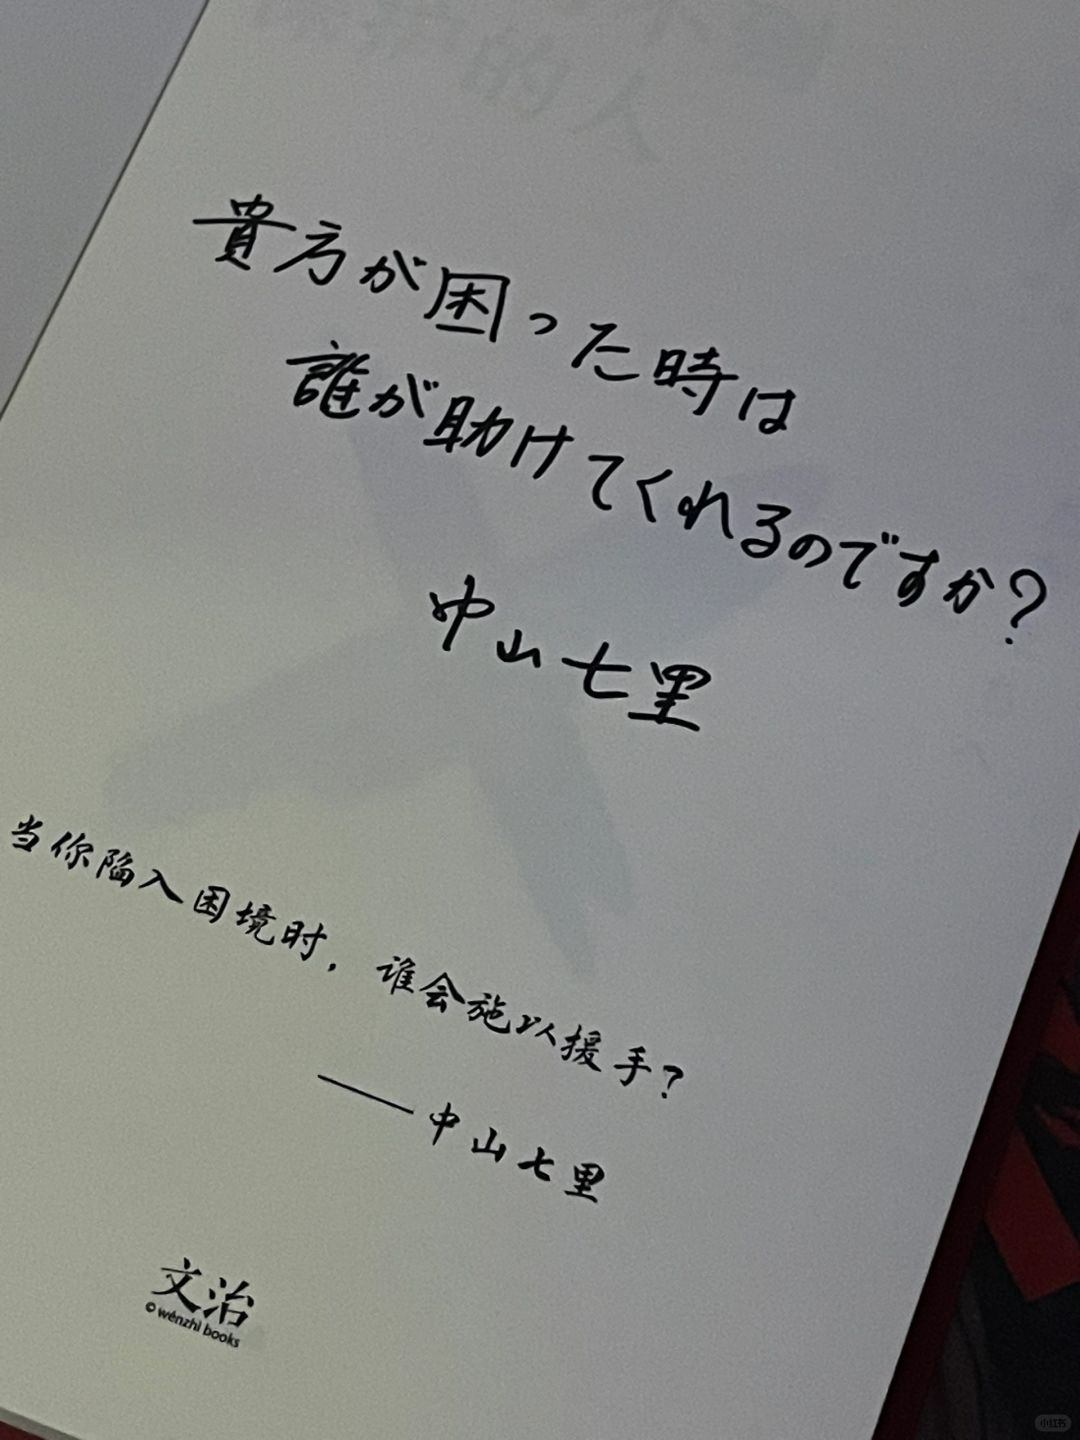 的人
貴方が困った時は
誰が助けてくれるのですか?
中山七里
当你陷入困境时，谁会施以援手?
——中山七里
文治
© wénzhì books
小红书